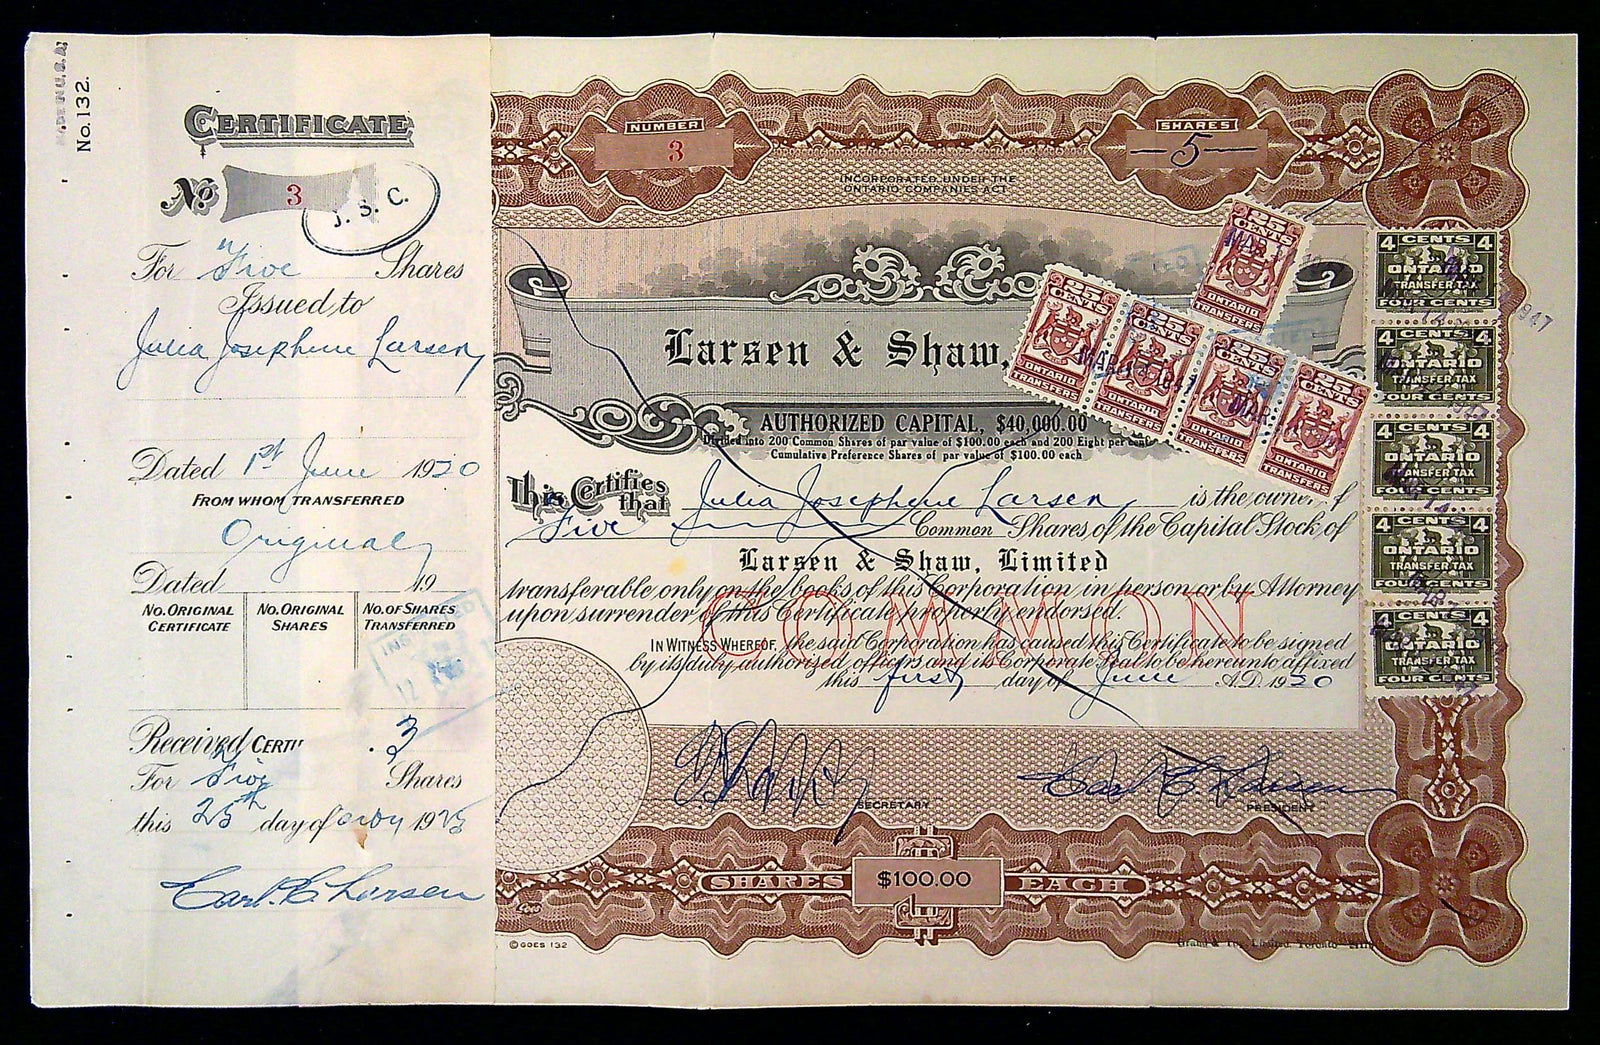 MADE IN U.S.A.
No. 132.
CERTIFICATE
No 3
J. S. C.
For "Five Shares
Issued to
Julia Josephine Larsen
Dated 1st June 1920
FROM WHOM TRANSFERRED
Original
Dated 19
NO. ORIGINAL CERTIFICATE NO. ORIGINAL SHARES NO. OF SHARES TRANSFERRED
Received CERTI . 3
For Five Shares
this 25th day of 19
Carl. C. Larsen
NUMBER
3
SHARES
5
INCORPORATED UNDER THE
ONTARIO COMPANIES ACT
Larsen & Shaw,
AUTHORIZED CAPITAL, $40,000.00
Divided into 200 Common Shares of par value of $100.00 each and 200 Eight per cent
Cumulative Preference Shares of par value of $100.00 each
This Certifies that Julia Josephine Larsen is the owner of
Five Common Shares of the Capital Stock of
Larsen & Shaw, Limited
transferable only on the books of this Corporation in person or by Attorney
upon surrender of this Certificate properly endorsed.
COMMON
IN WITNESS WHEREOF, the said Corporation has caused this Certificate to be signed
by its duly authorized officers and its Corporate Seal to be hereunto affixed
this first day of June A.D. 1920
SECRETARY
Carl C Larsen
PRESIDENT
SHARES $100.00 EACH
© GOES 132
25 CENTS
ONTARIO
TRANSFERS
25 CENTS
ONTARIO
TRANSFERS
25 CENTS
ONTARIO
TRANSFERS
25 CENTS
ONTARIO
TRANSFERS
25 CENTS
ONTARIO
TRANSFERS
4 CENTS 4
ONTARIO
TRANSFER TAX
FOUR CENTS
4 CENTS 4
ONTARIO
TRANSFER TAX
FOUR CENTS
4 CENTS 4
ONTARIO
TRANSFER TAX
FOUR CENTS
4 CENTS 4
ONTARIO
TRANSFER TAX
FOUR CENTS
4 CENTS 4
ONTARIO
TRANSFER TAX
FOUR CENTS